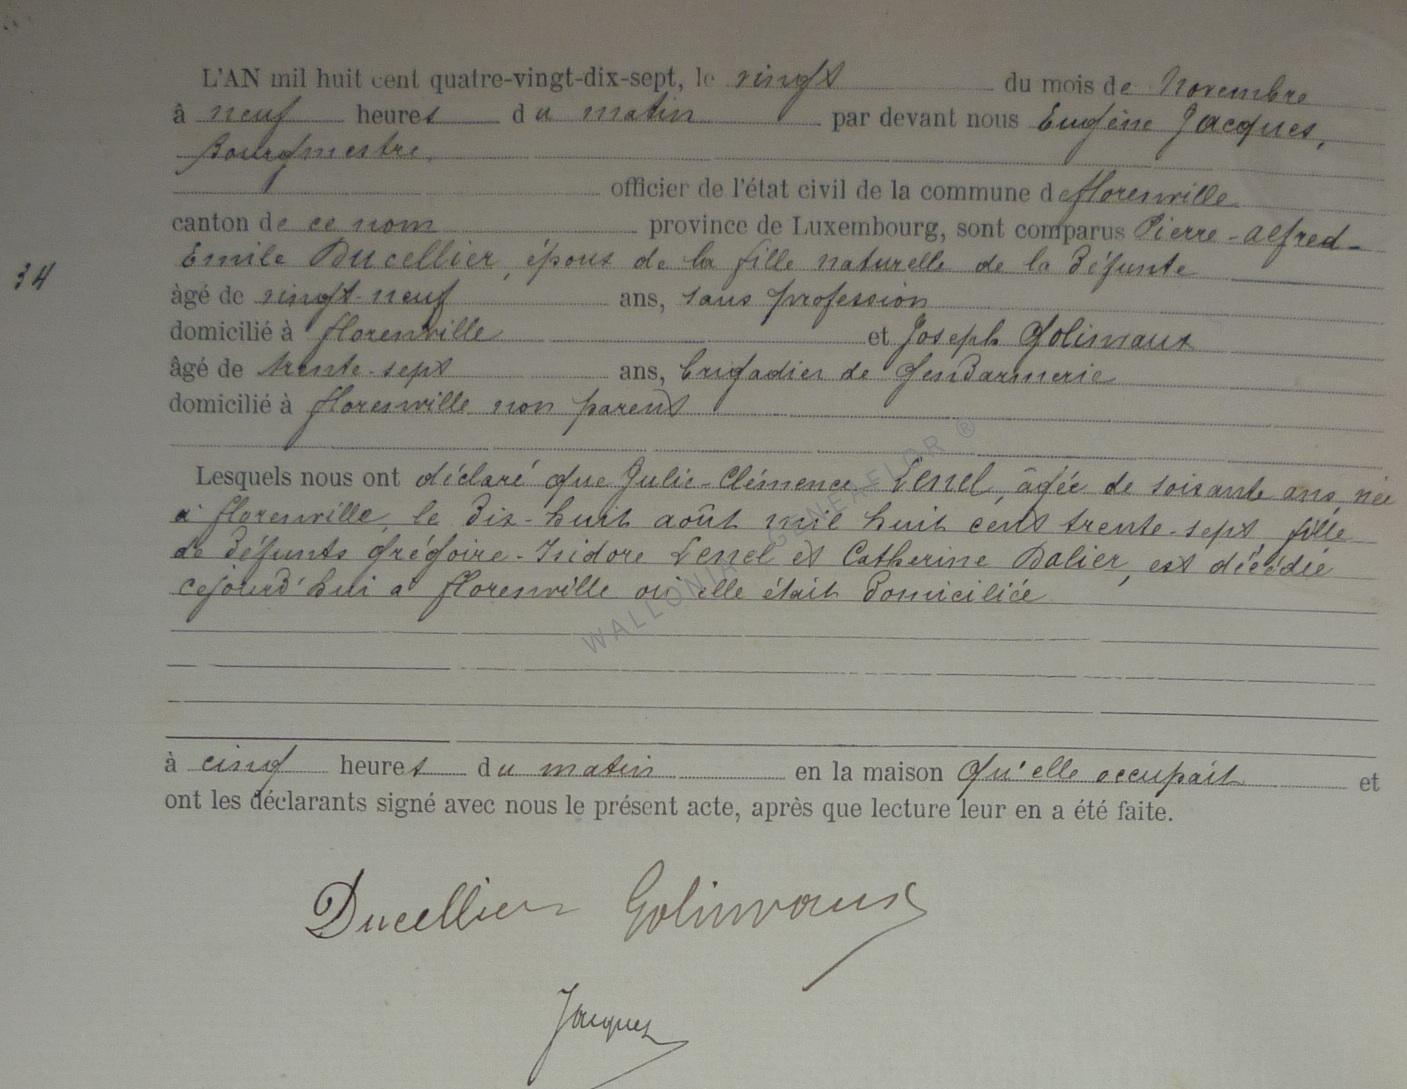 L'AN mil huit cent quatre-vingt-dix-sept, le vingt du mois de Novembre
à neuf heures du matin par devant nous Eugène Jacques,
Bourgmestre,
officier de l'état civil de la commune de florenville
canton de ce nom province de Luxembourg, sont comparus Pierre-Alfred-
Emile Ducellier, époux de la fille naturelle de la défunte
34
âgé de vingt-neuf ans, sans profession
domicilié à florenville et Joseph Golinvaux
âgé de trente-sept ans, brigadier de Gendarmerie
domicilié à florenville non parent
Lesquels nous ont déclaré que Julie-Clémence Lenel, âgée de soixante ans, née
à florenville, le dix-huit août mil huit cent trente-sept fille
de défunts Grégoire-Isidore Lenel et Catherine Dalier, est décédée
cejourd'hui à florenville où elle était domiciliée
à cinq heures du matin en la maison qu'elle occupait et
ont les déclarants signé avec nous le présent acte, après que lecture leur en a été faite.
Ducellier Golinvaux
Jacques
WALLONIA GENEAFLOR ®